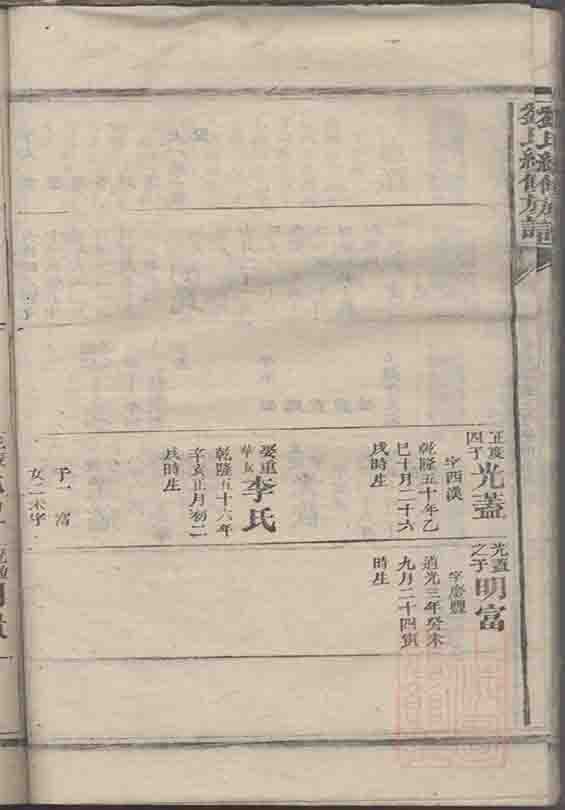 氏續修族譜
正度
四子
光蓋
字西漢
乾隆五十年乙
巳十月二十六
戌時生
娶重
華女
李氏
乾隆五十六年
辛亥正月初二
辰時生
子一 富
女二
光蓋
之子
明富
字慶豐
道光三年癸未
九月二十四寅
時生